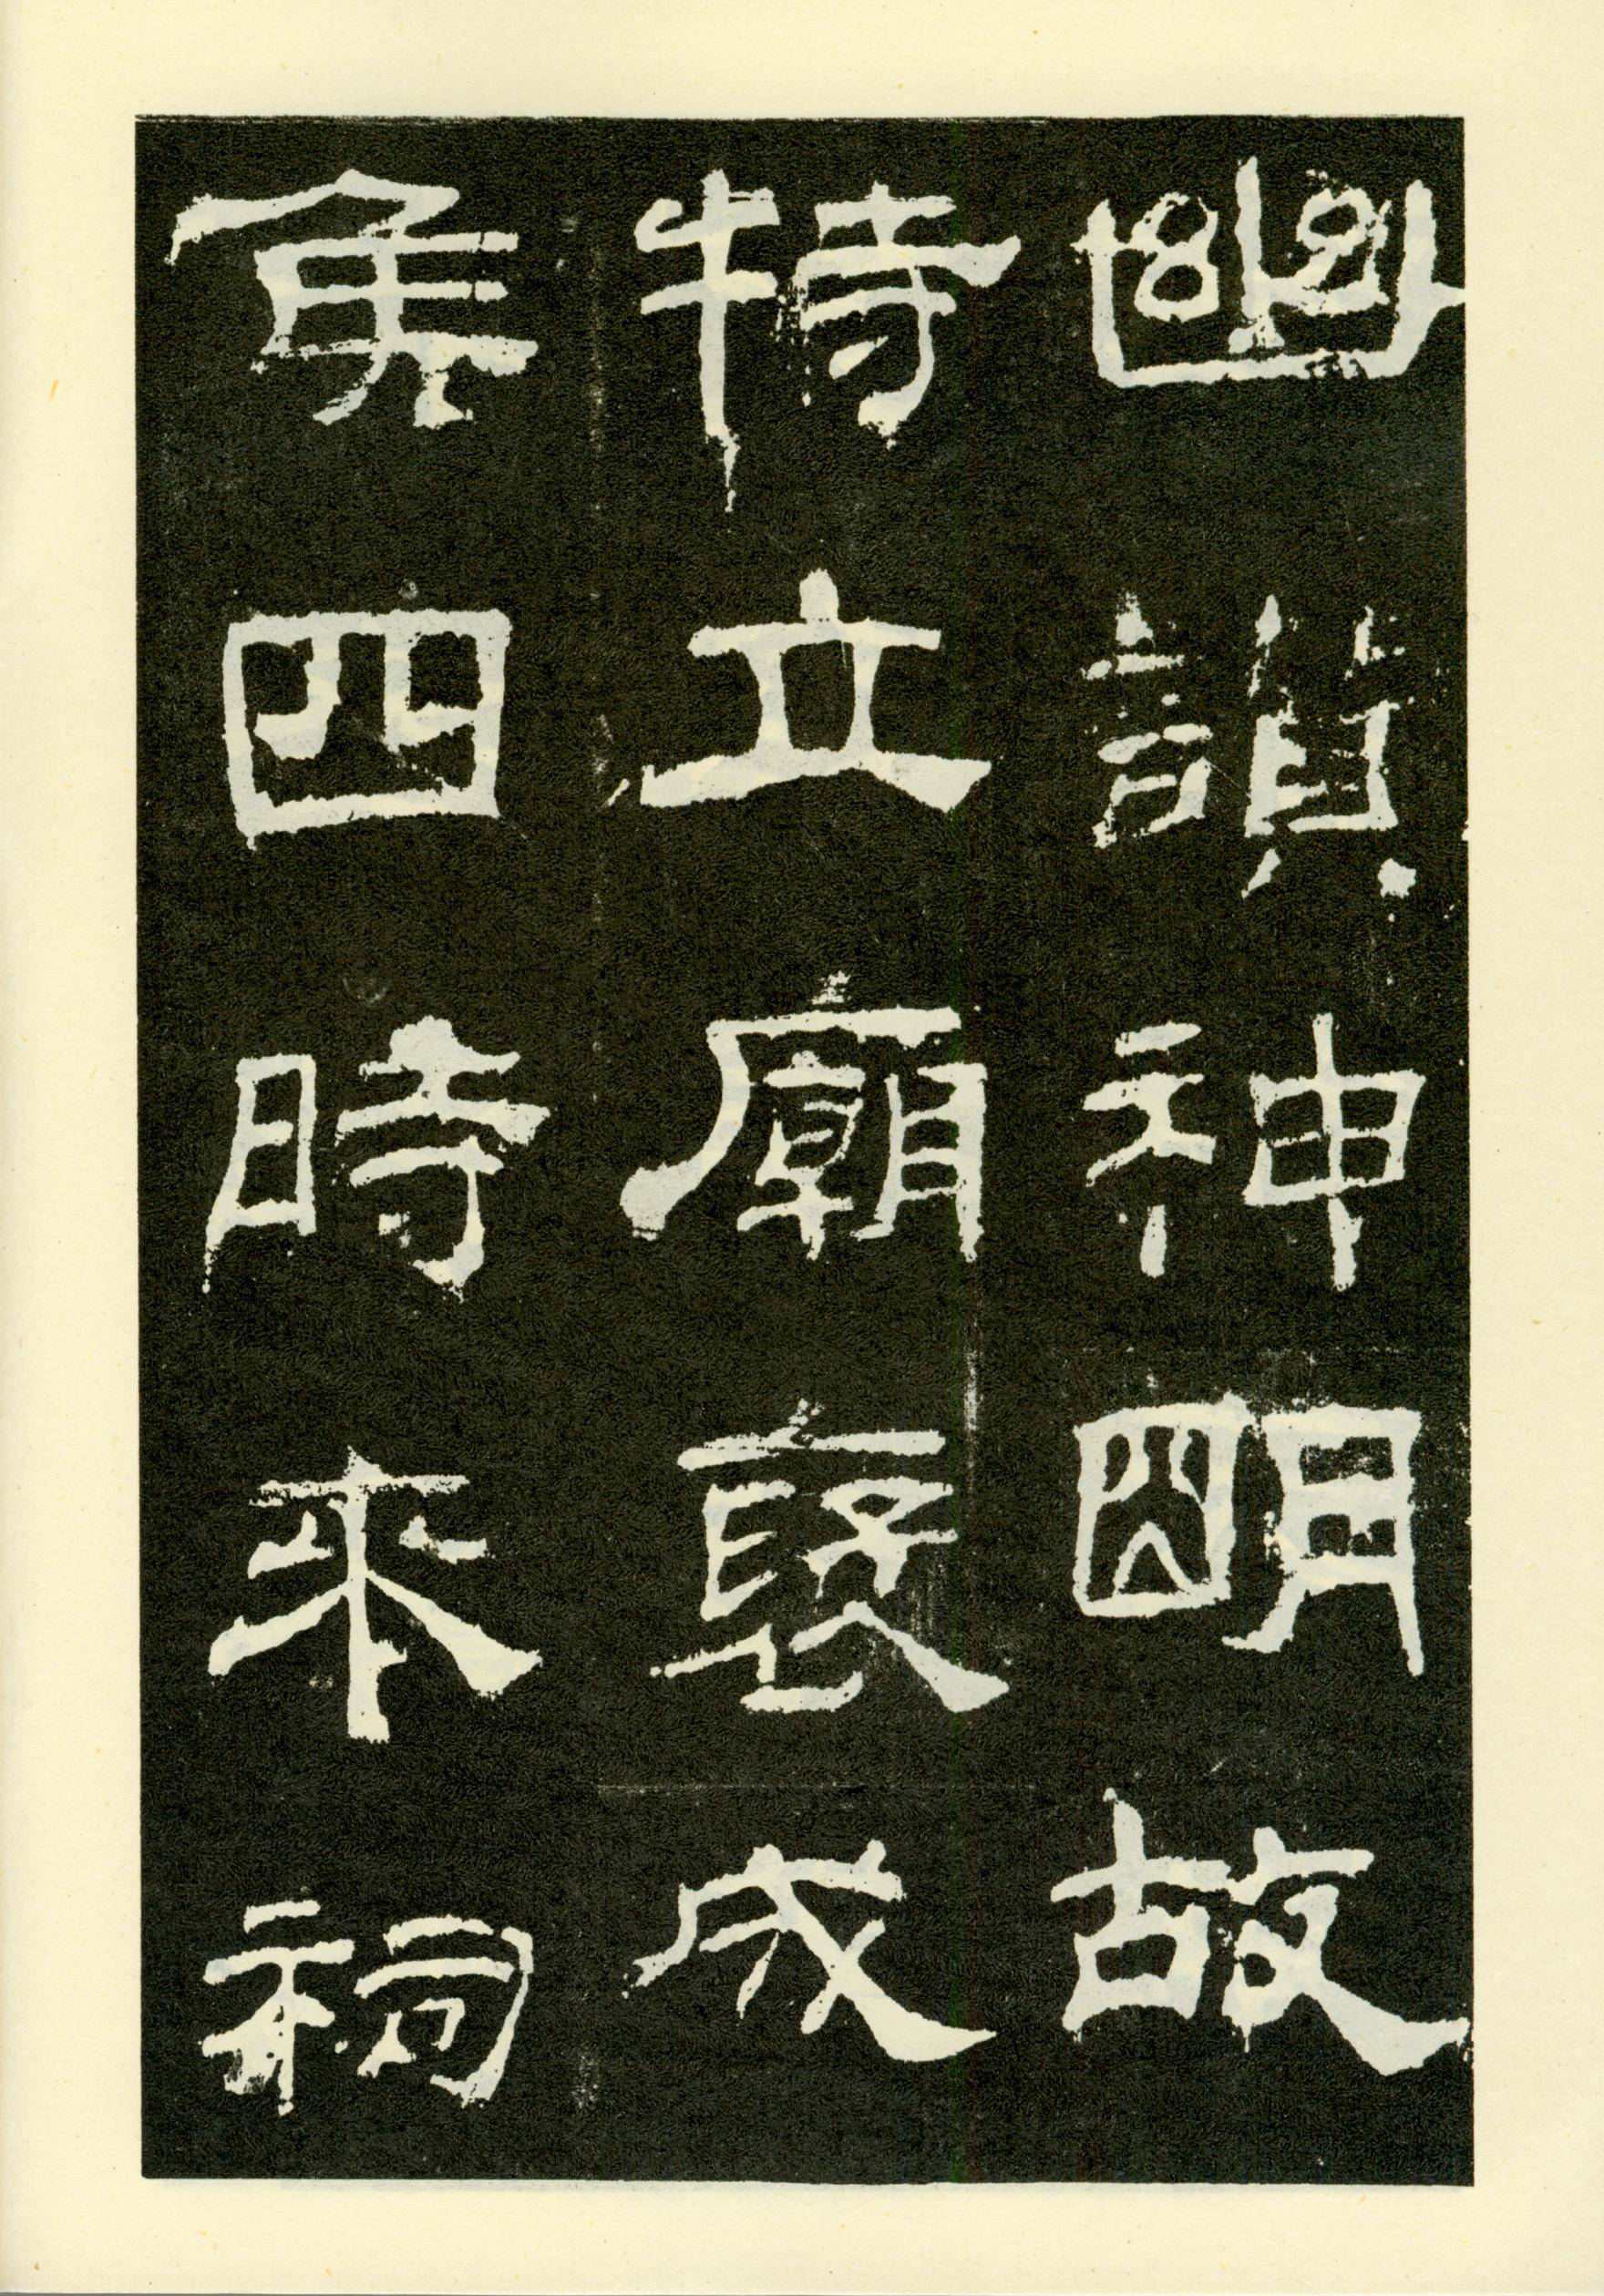 幽讚神朙故
特立廟褒成
侯四時來祠